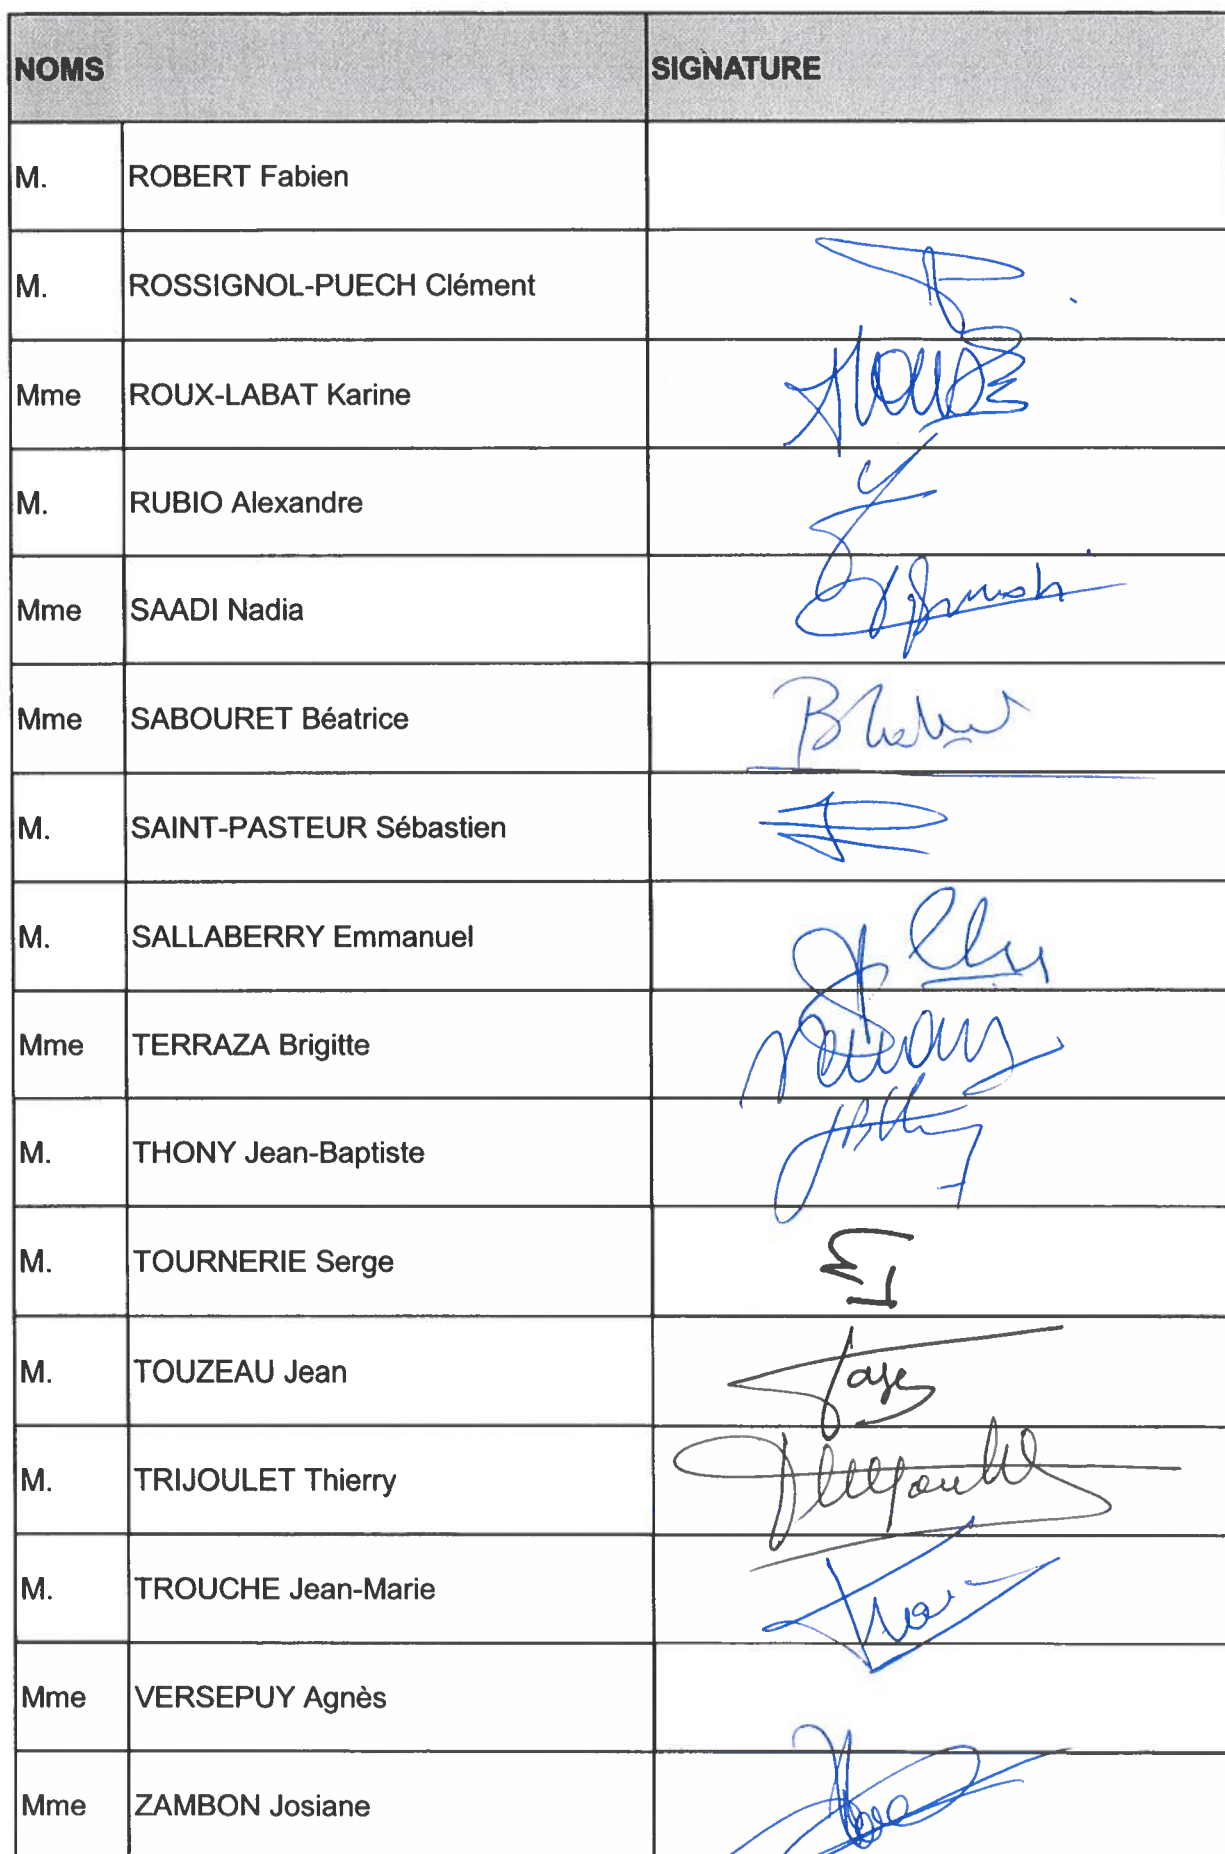 NOMS SIGNATURE
M. ROBERT Fabien
M. ROSSIGNOL-PUECH Clément
Mme ROUX-LABAT Karine
M. RUBIO Alexandre
Mme SAADI Nadia
Mme SABOURET Béatrice
M. SAINT-PASTEUR Sébastien
M. SALLABERRY Emmanuel
Mme TERRAZA Brigitte
M. THONY Jean-Baptiste
M. TOURNERIE Serge
M. TOUZEAU Jean
M. TRIJOULET Thierry
M. TROUCHE Jean-Marie
Mme VERSEPUY Agnès
Mme ZAMBON Josiane